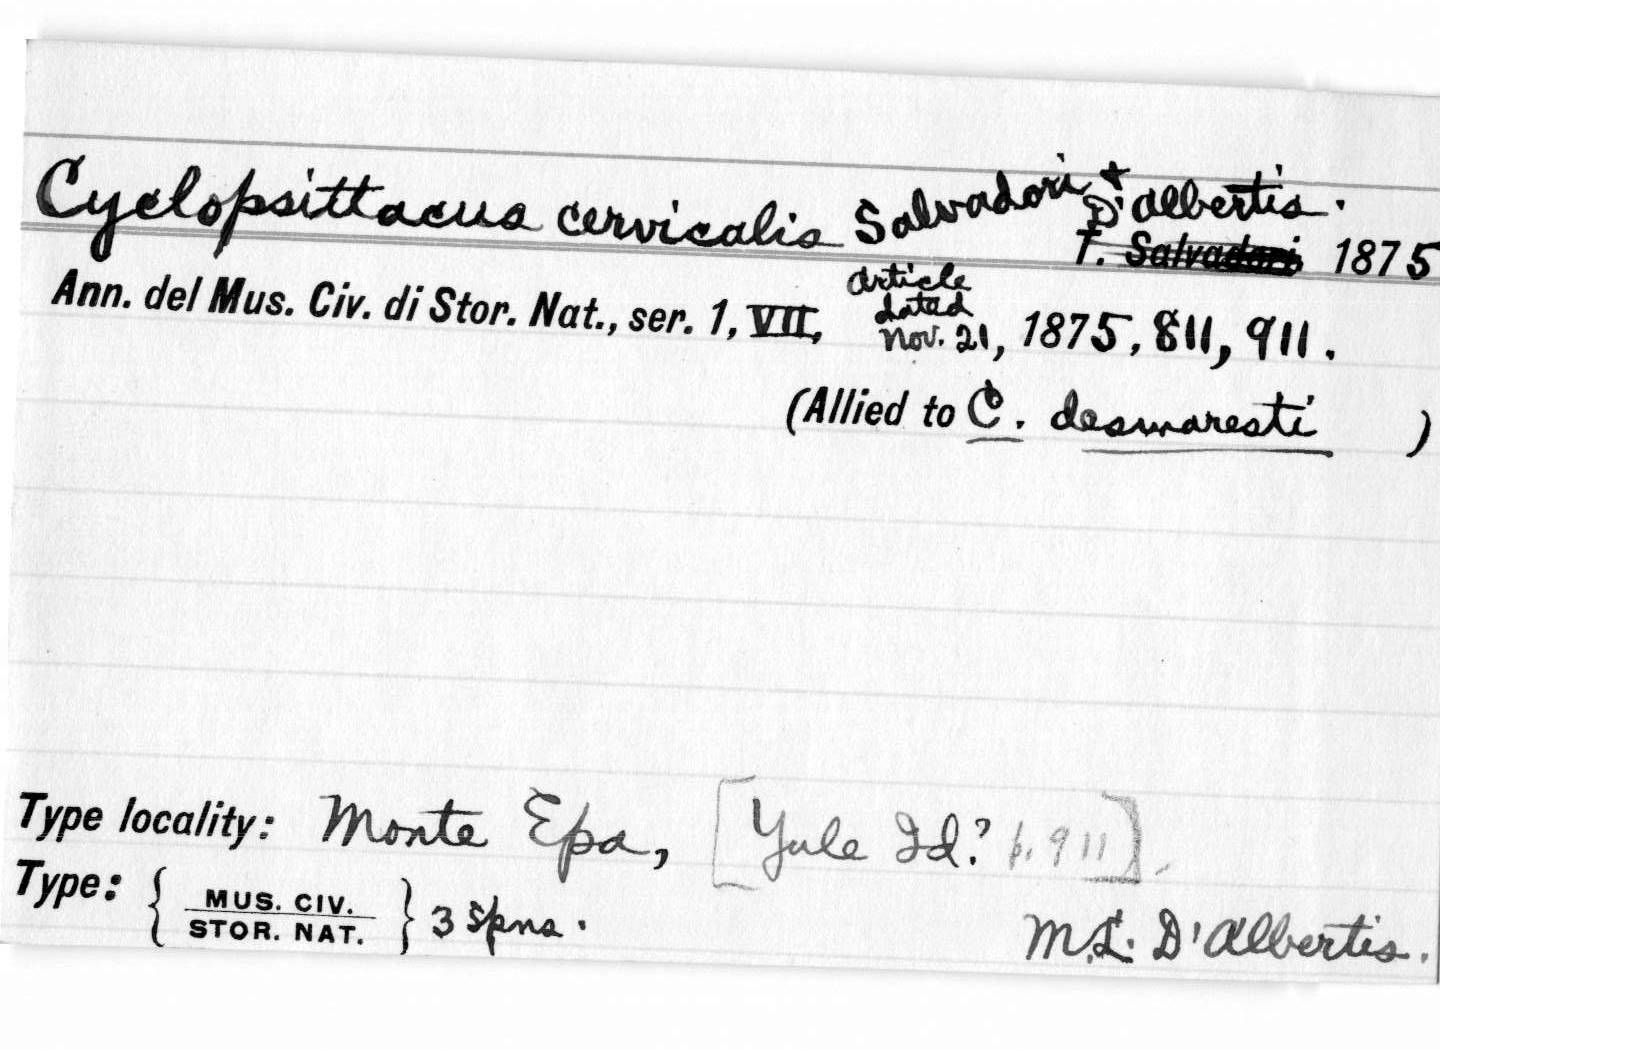 Cyclopsittacus cervicalis Salvadori + D'Albertis.
T. Salvadori 1875
Ann. del Mus. Civ. di Stor. Nat., ser. 1, VII, Article dated Nov. 21, 1875, 811, 911.
(Allied to C. desmaresti )
Type locality: Monte Epa, [Yule Id? p. 911].
Type: { MUS. CIV. STOR. NAT. } 3 Spns.
M.L. D'Albertis.